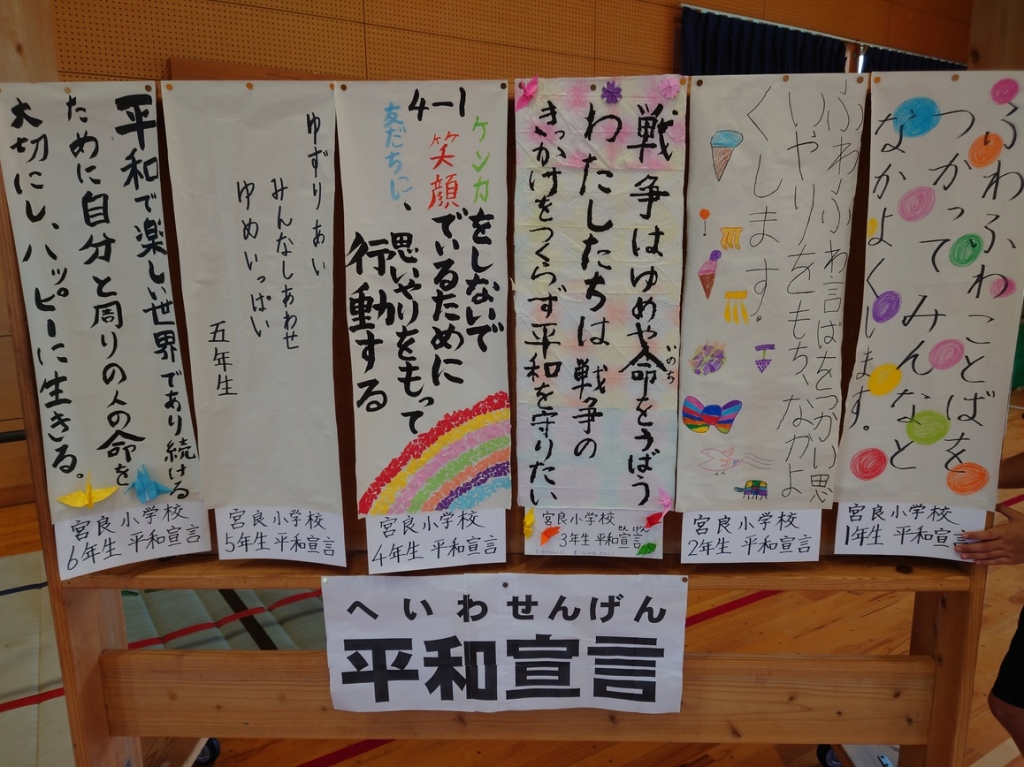 ふわふわことばを
つかって みんなと
なかよくします。
宮良小学校
1年生 平和宣言
ふわふわ言ばをつかい思
いやりをもち、なかよ
くします。
宮良小学校
2年生 平和宣言
戦争はゆめや命をうばう
いのち
わたしたちは戦争の
きっかけをつくらず平和を守りたい
宮良小学校
3年生 平和宣言
4-1
ケンカをしないで
笑顔でいるために
友だちに、思いやりをもって
行動する
宮良小学校
4年生 平和宣言
ゆずりあい
みんなしあわせ
ゆめいっぱい
五年生
宮良小学校
5年生 平和宣言
平和で楽しい世界であり続ける
ために自分と周りの人の命を
大切にし、ハッピーに生きる。
宮良小学校
6年生 平和宣言
へいわせんげん
平和宣言